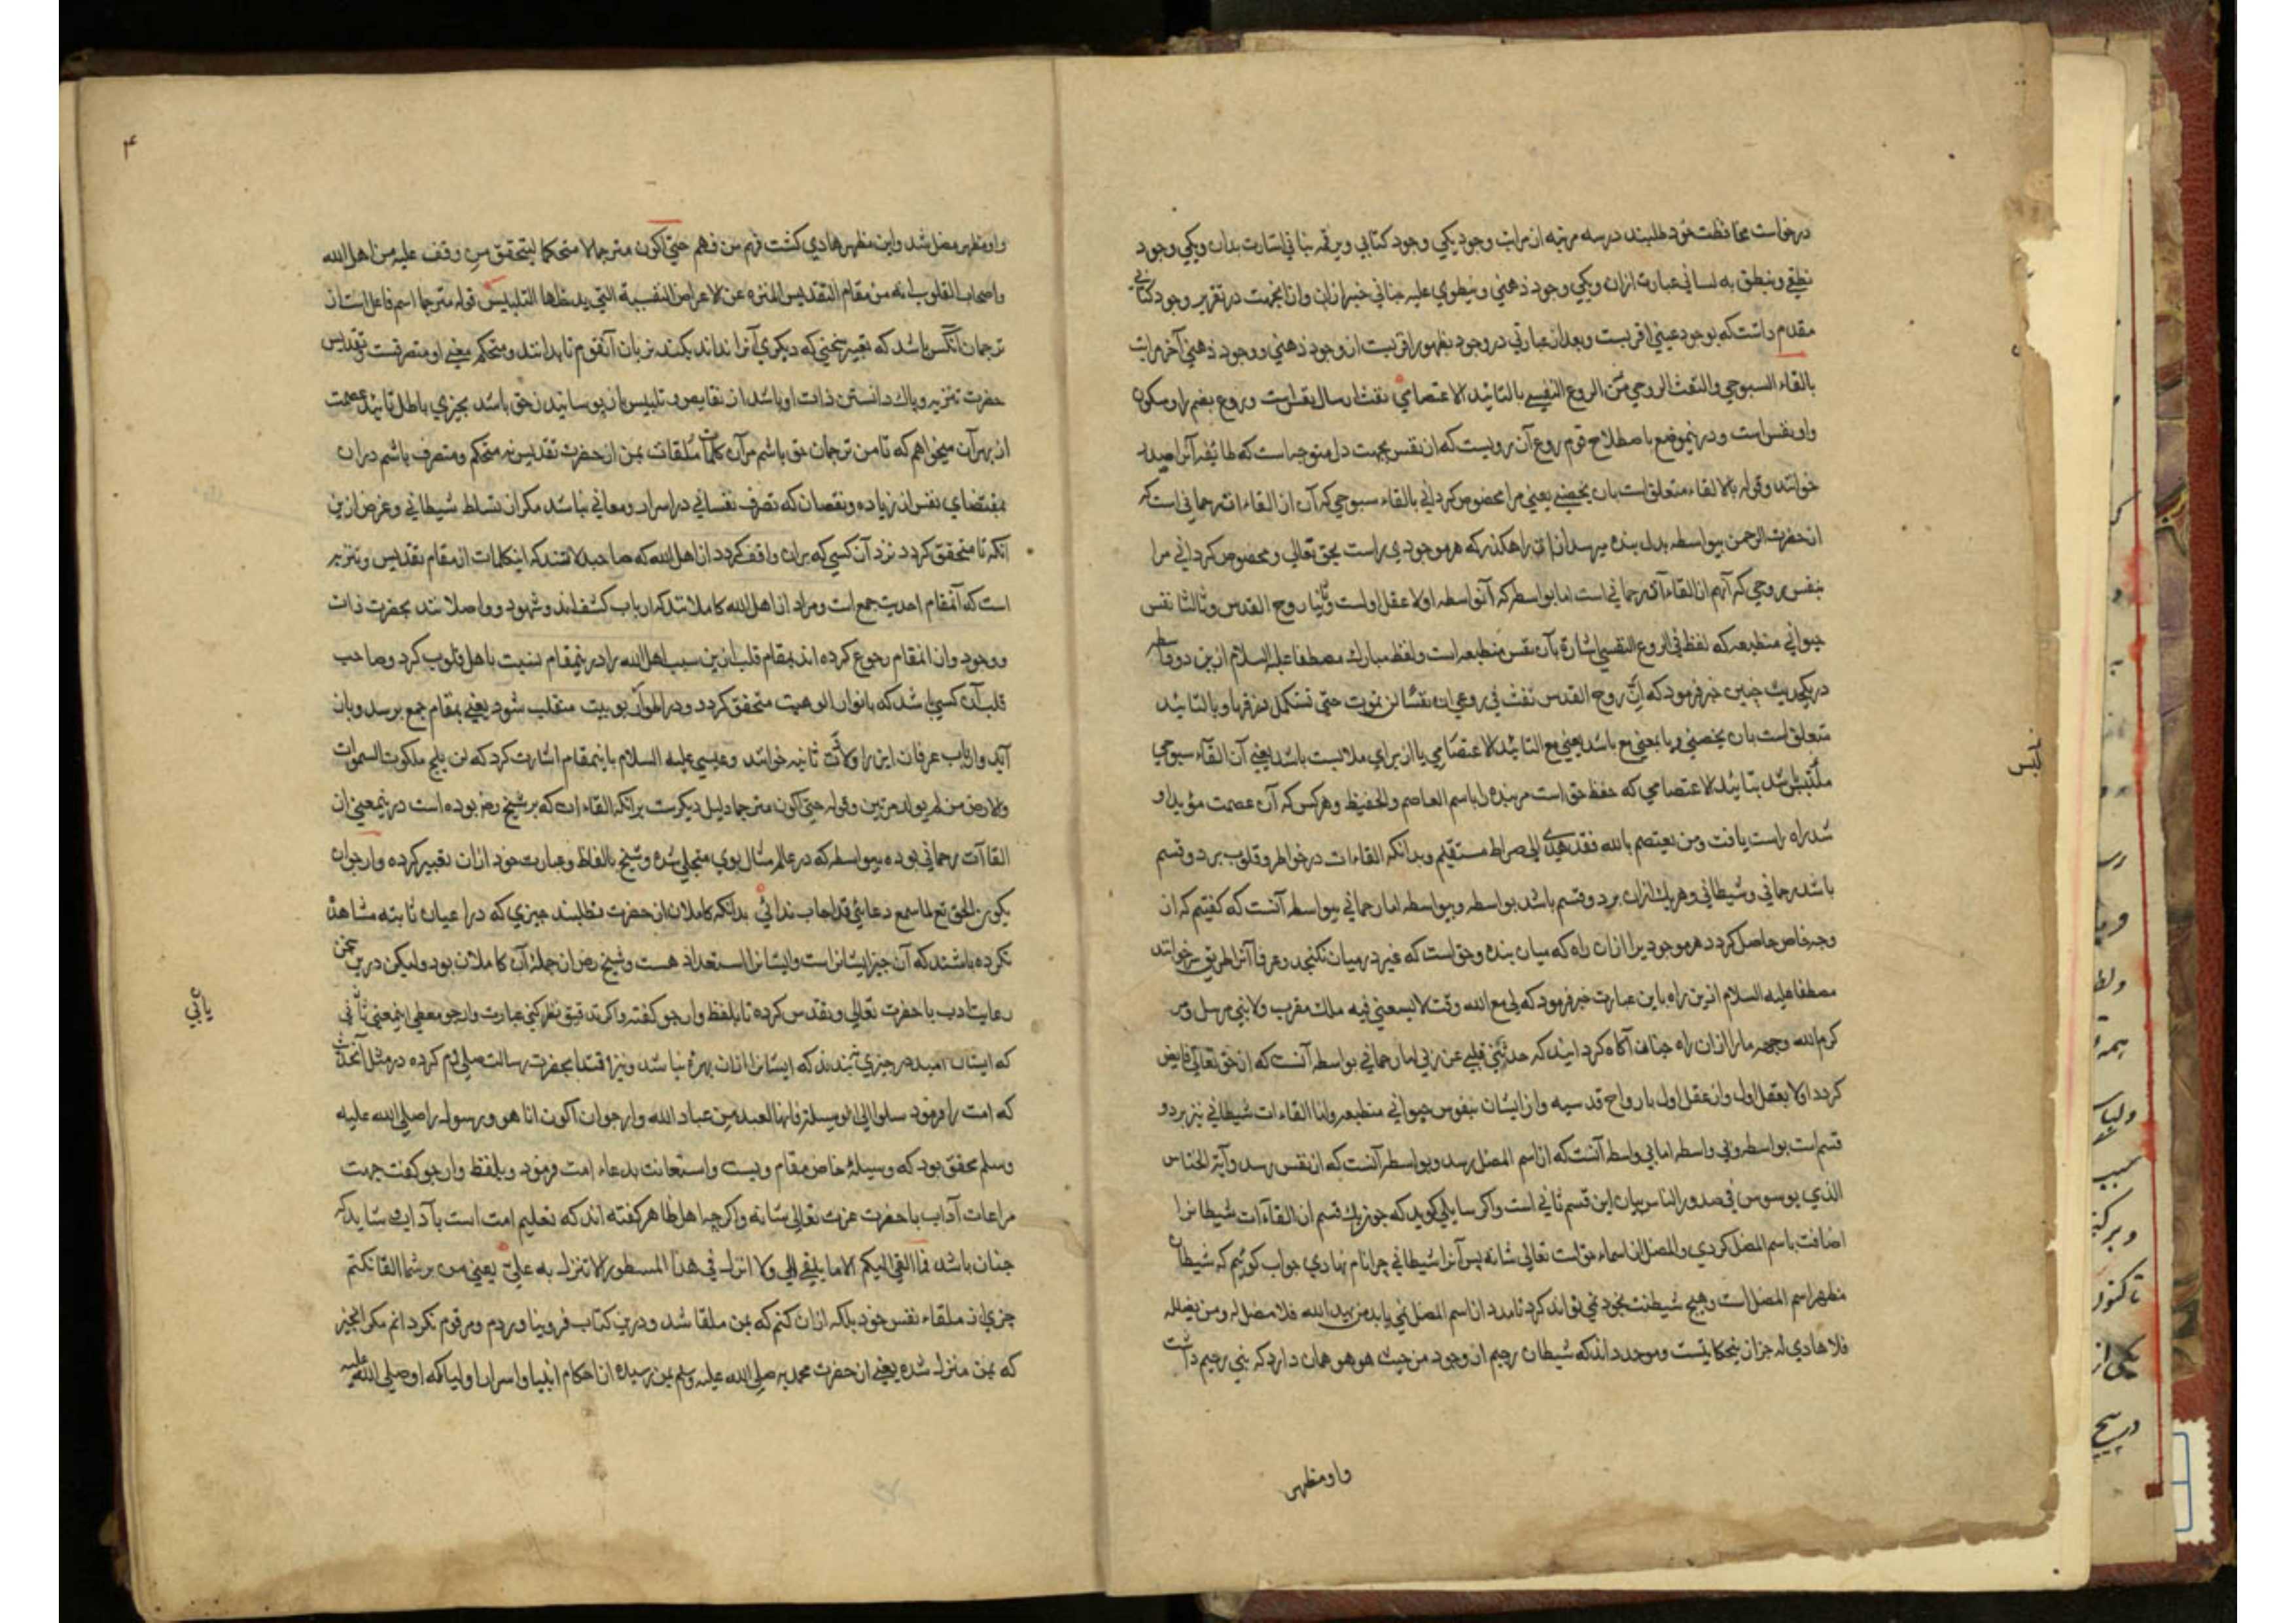 درخواست محافظت خود طلبند در سه مرتبه از مراتب وجود یکی وجود کتابی ویرقمه بنانی اشارت بدان ویکی وجود
نطقی وینطق به لسانی عبارت ازان ویکی وجود ذهنی وینطوی علیه جنانی خبر ازان وازانجهت در تقریر وجود کتابی
مقدم داشت که بوجود عینی اقربست وبعد از عبارتی در وجود بظهور اقربست از وجود ذهنی ووجود ذهنی آخر مراتب
بالقاء السبوحی والنفث الروحی فی الروع النفسی بالتائید الاعتصامی نفث ارسال نفس است وروع بضم را وسکون
واو نفس است ودرینموضع باصطلاح قوم روع آن رویست که از نفس بجهت دل متوجه است که طائفه آنرا صدر
خوانند وقوله بالالقاء متعلق است بان یخصنی یعنی مرا مخصوص کردانی بالقاء سبوحی که آن از القاءات رحمانی است که
از حضرت الرحمن بیواسطه بدل بنده میرسد ازان راهکذر که هر موجودی راست بحق تعالی ومخصوص کردانی مرا
بنفس روحی که آنهم از القاءات رحمانی است اما بواسطه که آنواسطه اولا عقل اولست وثانیا روح القدس وثالثا نفس
حیوانی منطبعه که لفظ فی الروع النفسی اشارة بآن نفس منطبعه است ولفظ مبارك مصطفا علیه السلام ازین دو واسطه
در یکحدیث چنین خبر فرمود که انّ روح القدس نفث فی روعی ان نفسا لن تموت حتی تستکمل رزقها وبالتائید
متعلق است بان یخصنی وبا بمعنی مع باشد یعنی مع التائید الاعتصامی یا از برای ملابست باشد یعنی آن القاء سبوحی
ملتبس باشد بتائید الاعتصامی که حفظ حق است مر بنده را باسم العاصم والحفیظ وهرکس که آن عصمت مؤید او
شد راه راست یافت ومن یعتصم بالله فقد هدی الی صراط مستقیم وبدانکه القاءات در خواطر وقلوب بر دو قسم
باشد رحمانی وشیطانی وهر یك ازان بر دو قسم باشد بواسطه وبیواسطه اما رحمانی بیواسطه آنست که کفتیم که از
وجه خاص حاصل کردد هر موجودیرا ازان راه که میان بنده وحق است که غیر در میان نکنجد وعرفا آنرا طریق سر خوانند
مصطفا علیه السلام ازین راه باین عبارت خبر فرمود که لی مع الله وقت لا یسعنی فیه ملك مقرب ولا نبی مرسل
کرم الله وجهه مارا ازان راه چنان آکاه کردانید که حدثنی قلبی عن ربی اما رحمانی بواسطه آنست که از حق تعالی فایض
کردد اولا بعقل اول واز عقل اول بارواح قدسیه واز ایشان بنفوس حیوانی منطبعه واما القاءات شیطانی نیز بر دو
قسم است بواسطه وبی واسطه اما بی واسطه آنست که از اسم المضل رسد وبواسطه آنست که از نفس رسد وآیة الخناس
الذی یوسوس فی صدور الناس بیان این قسم ثانی است واکر سایلی کوید که چون یك قسم از القاءات شیطانرا
اضافت باسم المضل کردی والمضل از اسماء حق است تعالی شانه پس آنرا شیطانی چرا نام نهادی جواب کوییم که شیطان
مظهر اسم المضل است وهیچ شیطنت بخود نمی تواند کرد تا مدد از اسم المضل نمی یابد من یهد الله فلا مضل له ومن یضلله
فلا هادی له جز ازین حکایتست وموحد داند که شیطان رجیم از وجود من حیث هو هو همان دارد که نبی رحیم داشت
واو مظهر
واو مظهر مضل شد واین مظهر هادی کشت فهم من فهم حتی اکون مترجما لا متحکما لیتحقق من وقف علیه من اهل الله
واصحاب القلوب انه من مقام التقدیس المنزه عن الاعراض النفسیة التی یدخلها التلبیس قوله مترجما اسم فاعل است از
ترجمان آنکس باشد که تعبیر سخنی که دیکری آنرا نداند بکند بزبان آنقوم تا بدانند ومتحکم یعنی او متصرفست وتقدیس
حضرت تنزیه وپاك دانستن ذات او باشد از نقایص وتلبیس باز پوسانیدن حق باشد بچیزی باطل تائید عصمت
از بهر آن میخواهم که تا من ترجمان حق باشم مر آن کلمات ملقات بمن از حضرت تقدیس نه متحکم ومتصرف باشم دران
بمقتضای نفس از زیاده ونقصان که تصرف نفسانی در اسرار ومعانی نباشد مکر از تسلط شیطانی وغرض ازین
آنکه تا متحقق کردد نزد آن کسی که بران واقف کردد از اهل الله که صاحبدلانند که اینکلمات از مقام تقدیس وتنزیه
است که آنمقام احدیت جمع است ومراد از اهل الله کاملانند که ارباب کشف اند وشهود وواصلانند بحضرت ذات
ووجود وازانمقام رجوع کرده اند بمقام قلب ازین سبب اهل الله را درینمقام نسبت باهل قلوب کرد وصاحب
قلب آن کسی باشد که بانوار الوهیت متحقق کردد ودر اطوار ربوبیت متقلب شود یعنی بمقام جمع برسد وبان
آید وارباب عرفان این را ولادت ثانیه خوانند وعیسی علیه السلام باینمقام اشارت کرد که لن یلج ملکوت السموات
والارض من لم یولد مرتین وقوله حتی اکون مترجما دلیل دیکرست برانکه القاءات که بر شیخ رض بوده است درینمعنی از
القاآت رحمانی بوده بیواسطه که در عالم مثال بوی متجلی شده وشیخ بالفاظ وعبارت خود ازان تعبیر کرده وارجو ان
یکون الحق تع لما سمع دعائی قد اجاب ندائی بدانکه کاملان از حضرت نطلبند چیزی که در اعیان ثابته مشاهدة
نکرده باشند که آن چیز ایشانراست وایشانرا استعداد هست وشیخ رض از جملهٔ آن کاملان بود ولیکن درین سخن
رعایت ادب با حضرت تعالی وتقدس کرده تا بلفظ وارجو کفته واکر تدقیق نظر کنی عبارت وارجو معطی اینمعنی
که ایشان امید در چیزی نبندند که ایشانرا ازان بهره نباشد ونیز اقتدا بحضرت رسالت صلی الله کرده در مثل آنحدیث
که امت را فرمود سلوا الی الوسیلة فانها لعبد من عباد الله وارجو ان اکون انا هو ورسول را صلی الله علیه
وسلم محقق بود که وسیله خاص مقام ویست واستعانت بدعاء امت فرمود وبلفظ وارجو کفت جهت
مراعات آداب با حضرت عزت تعالی شانه واکرچه اهل ظاهر کفته اند که تعلیم امت است بآداب شاید که
چنان باشد فما القی الیکم الا ما یلقی الی ولا انزل فی هذا المسطور الا ما ینزل به علیّ یعنی من بر شما القا نکنم
چیزی از تلقاء نفس خود بلکه ازان کنم که بمن ملقا شد ودرین کتاب فرو نیاوردم ومرقوم نکردانم مکر انچیز
که بمن منزل شده یعنی از حضرت محمدیه صلی الله علیه وسلم بمن رسیده از احکام انبیا واسرار اولیا که او صلی الله علیه